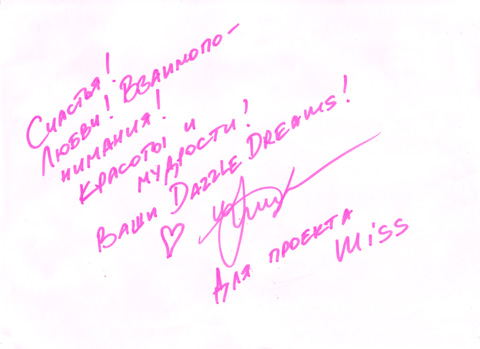 Счастья!
Любви! Взаимопо-
нимания!
Красоты и
мудрости!
Ваши Dazzle Dreams!
Для проекта
Miss